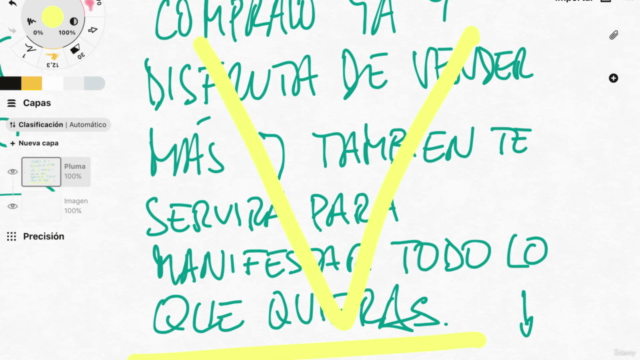 Importar
0%
100%
12,3
Capas
Clasificación | Automático
+ Nueva capa
Pluma
100%
Imagen
100%
Precisión
COMPRALO YA Y
DISFRUTA DE VENDER
MÁS Y TAMBIEN TE
SERVIRÁ PARA
MANIFESTAR TODO LO
QUE QUIERAS.
Udemy